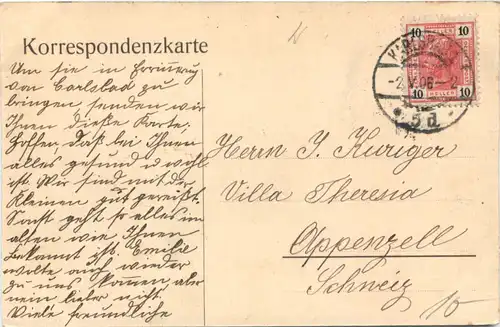 Korrespondenzkarte
Um sie in Errinnerung
von Carlsbad zu
bringen, senden wir
Ihnen diese Karte.
Hoffen, daß bei Ihnen
alles gesund u wohl
ist. Wir sind mit der
Kleinen gut gereißt.
Sonst geht so alles im
alten wie Ihnen
bekannt ist. Emilie
wollte auch wieder
zu uns kommen aber
nein lieber nicht
Viele freundliche
10 10
10 HELLER 10
-2.V.06-
5d
Herrn J. Kuriger
Villa Theresia
Appenzell
Schweiz
10